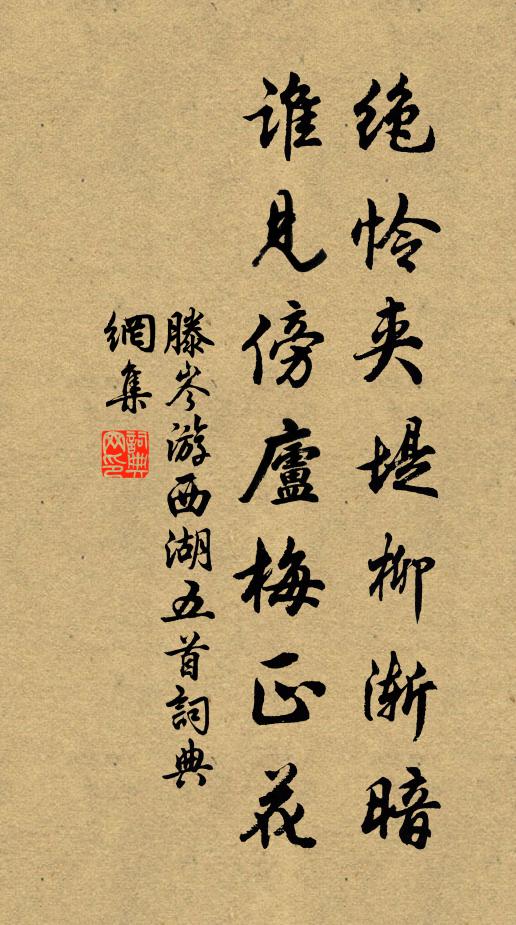 绝怜夹堤柳渐暗
谁见傍廬梅正花
滕岑游西湖五首詞典
網集
詞典
网印